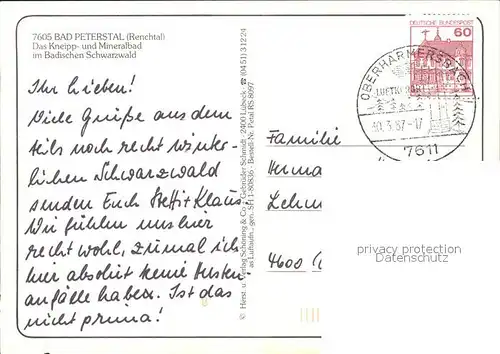 7605 BAD PETERSTAL (Renchtal)
Das Kneipp- und Mineralbad
im Badischen Schwarzwald
Ihr Lieben!
Viele Grüße aus dem
teils noch recht winter-
lichen Schwarzwald
senden Euch Steffi + Klaus
Wir fühlen uns hier
recht wohl, zumal ich
hier absolut keine Husten-
anfälle habe. Ist das
nicht prima!
© Herst. u. Verlag Schöning & Co + Gebrüder Schmidt · 2400 Lübeck · ☎ (0451) 31224
gen. SH 1-80836 · Bestell-Nr. Petal BS 8097
DEUTSCHE BUNDESPOST
60
OBERHARMERSBACH
LUFTKURORT
10.3.87-17
7611
Familie
Herma
Lehm
4600
privacy protection
Datenschutz